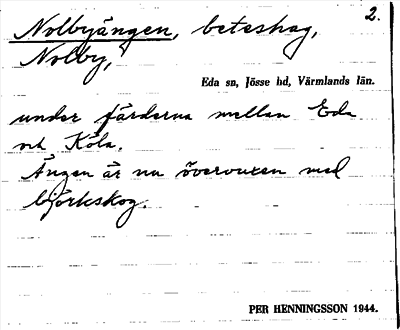 2.
Nolbyängen, beteshag,
Nolby,
Eda sn, Jösse hd, Värmlands län.
under färderna mellan Eda
och Köla.
Ängen är nu övervuxen med
björkskog.
PER HENNINGSSON 1944.